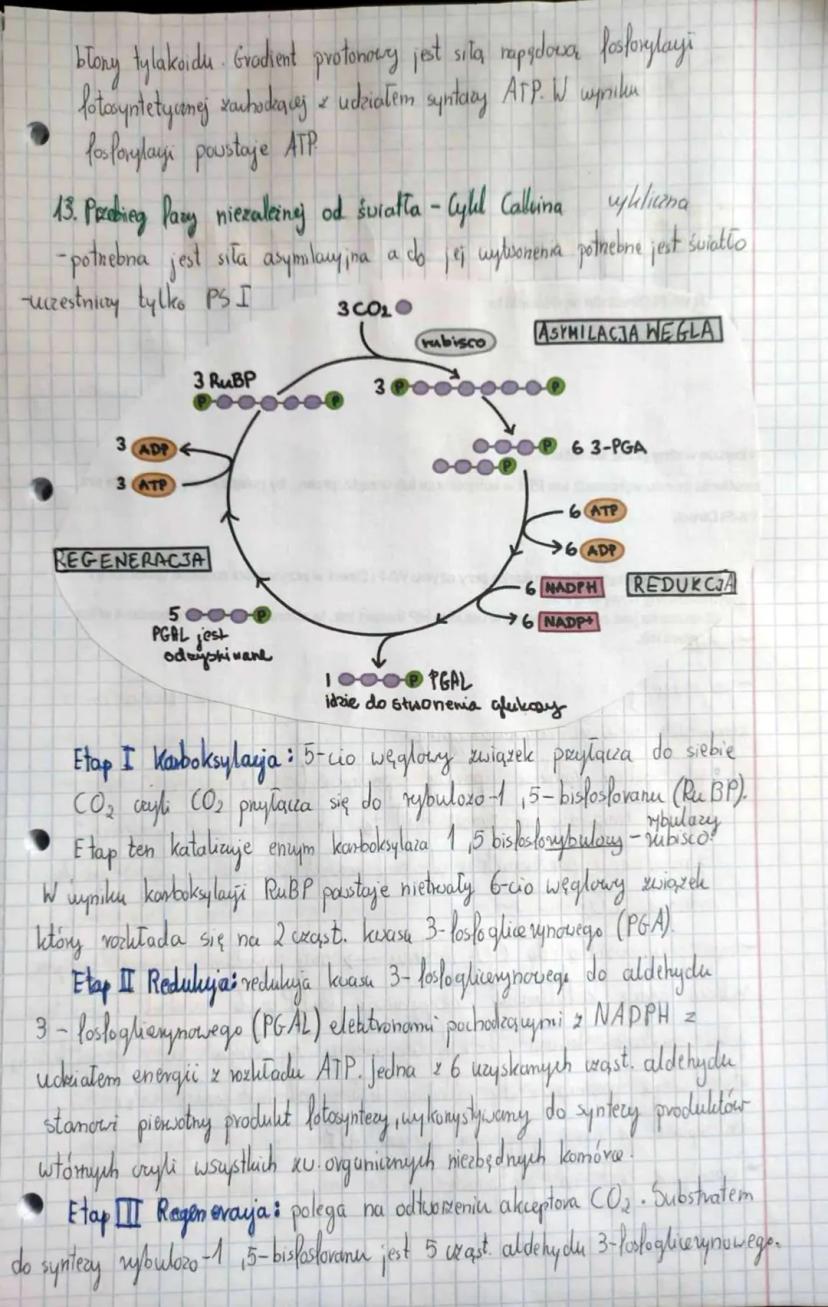 błony tylakoidu. Gradient protonowy jest siłą napędową fosforylacji
fotosyntetycznej zachodzącej z udziałem syntazy ATP. W wyniku
fosforylacji powstaje ATP.
13. Przebieg fazy niezależnej od światła - Cykl Calvina cykliczna
- potrzebna jest siła asymilacyjna a do jej wytworzenia potrzebne jest światło
- uczestniczy tylko PS I
3 CO2
rubisco
ASYMILACJA WĘGLA
3 RuBP
P P
3 P P
P 6 3-PGA
P
3 ADP
3 ATP
6 ATP
6 ADP
REGENERACJA
6 NADPH
REDUKCJA
6 NADP+
5 P
PGAL jest
odzyskiwane
1 P PGAL
idzie do stworzenia glukozy
Etap I Karboksylacja: 5-cio węglowy związek przyłącza do siebie
CO2 czyli CO2 przyłącza się do rybulozo-1,5-bisfosforanu (RuBP).
rybulozy
Etap ten katalizuje enzym karboksylaza 1,5 bisfosforybulozy - rubisco.
W wyniku karboksylacji RuBP powstaje nietrwały 6-cio węglowy związek
który rozkłada się na 2 cząst. kwasu 3-fosfoglicerynowego (PGA).
Etap II Redukcja: redukcja kwasu 3-fosfoglicerynowego do aldehydu
3-fosfoglicerynowego (PGAL) elektronami pochodzącymi z NADPH z
udziałem energii z rozkładu ATP. Jedna z 6 uzyskanych cząst. aldehydu
stanowi pierwotny produkt fotosyntezy, wykorzystywany do syntezy produktów
wtórnych czyli wszystkich zw. organicznych niezbędnych komórce.
Etap III Regeneracja: polega na odtworzeniu akceptora CO2. Substratem
do syntezy rybulozo-1,5-bisfosforanu jest 5 cząst. aldehydu 3-fosfoglicerynowego.